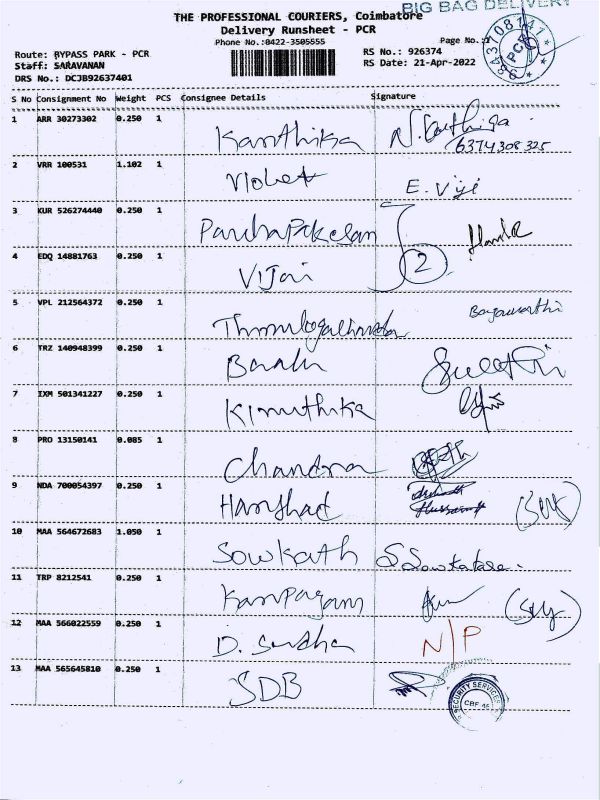 BIG BAG DELIVERY
THE PROFESSIONAL COURIERS, Coimbatore
Delivery Runsheet - PCR
Phone No.:0422-3505555
Page No.:1
Route: BYPASS PARK - PCR
RS No.: 926374
Staff: SARAVANAN
RS Date: 21-Apr-2022
DRS No.: DCJB92637401
PCR
S No Consignment No Weight PCS Consignee Details Signature
1 ARR 30273302 0.250 1 Karthika N. Karthiga
6374308325
2 VRR 100531 1.102 1 Violet E. Viji
3 KUR 526274440 0.250 1
4 EDQ 14881763 0.250 1 Vijai 2
5 VPL 212564372 0.250 1
6 TRZ 140948399 0.250 1
7 IXM 501341227 0.250 1 Kiruthika
8 PRO 13150141 0.085 1 Chandra
9 NDA 700054397 0.250 1 Harshad
10 MAA 564672683 1.050 1 Sowkath
11 TRP 8212541 0.250 1 Karpagam
12 MAA 566022559 0.250 1 D. Sudha N/P
13 MAA 565645810 0.250 1 SDB
SECURITY SERVICES